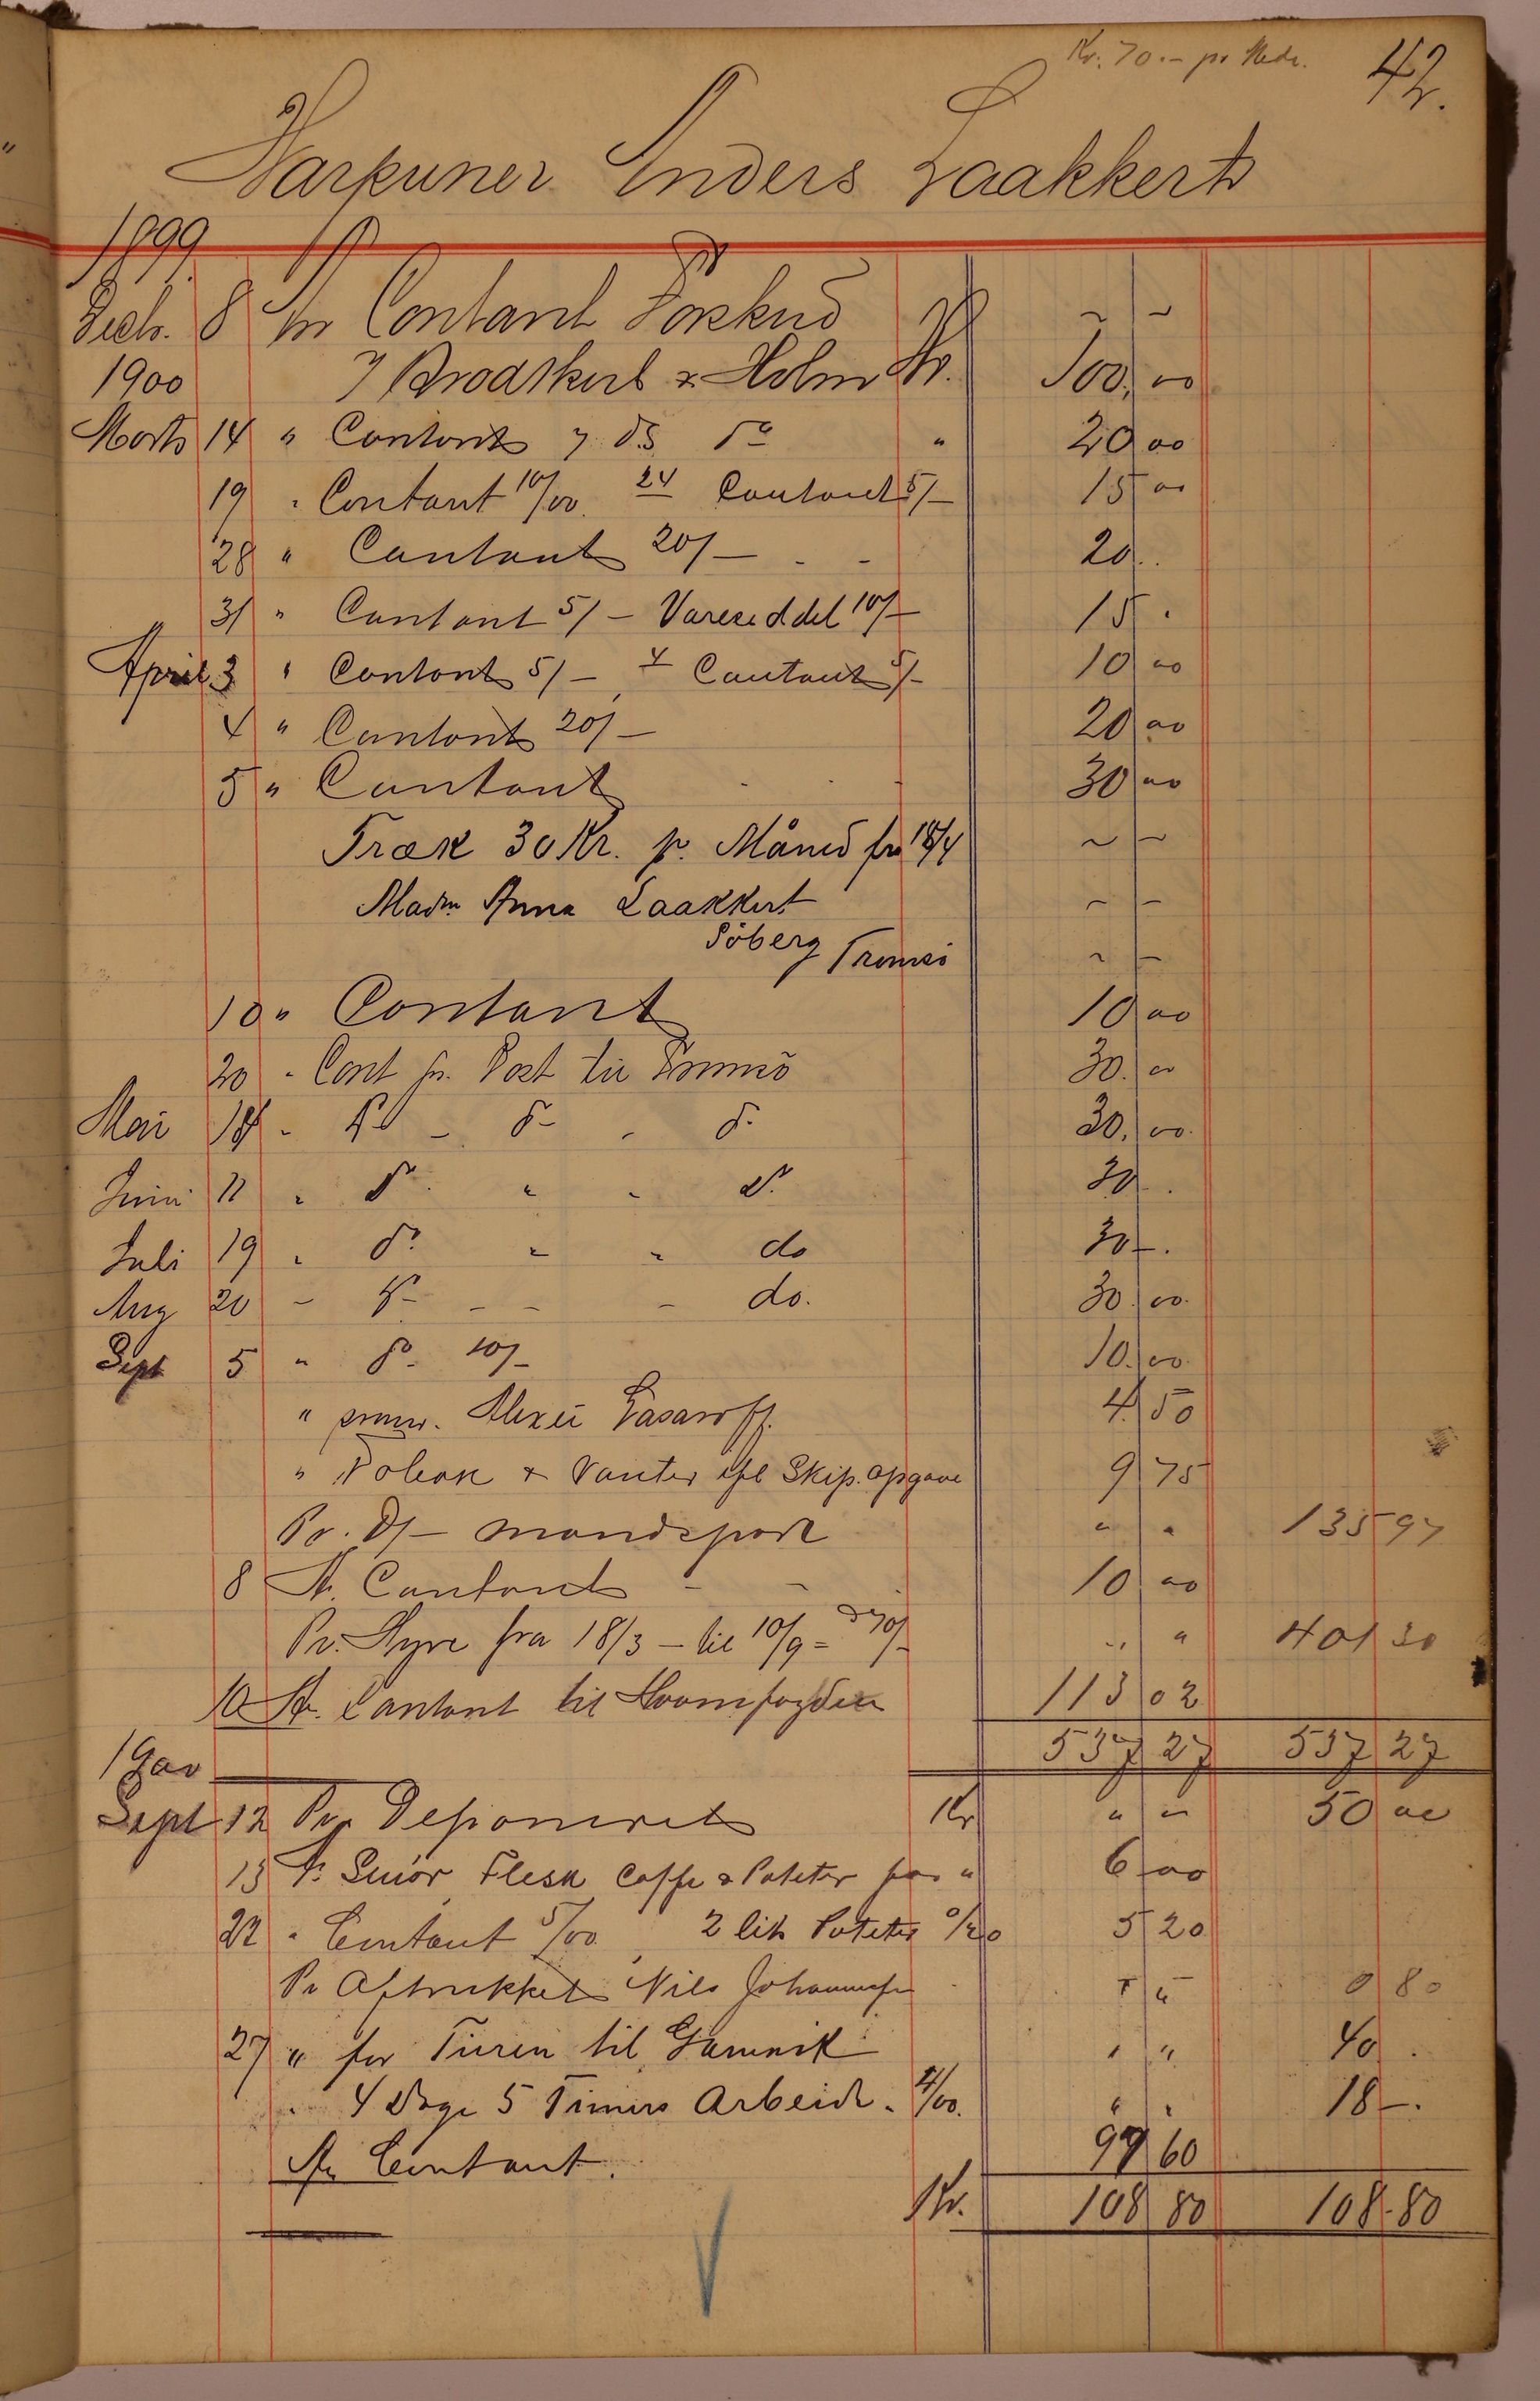 Kr. 70.- pr Mdr. 42.
Harpuner Anders Laakkert
1899
Decbr. 8 An Contant Forskud ~ ~
1900 7 Brodtkorb & Holm Kr. 100,00
Marts 14 " Contant 7 DS do " 20 00
19 " Contant 10/00. 24 Contant 5/- 15 00
28 " Contant 20/- - - 20 . .
31 " Contant 5/- Vareseddel 10/- 15 .
April 3 " Contant 5/-, 4 Contant 5/- 10 00
4 " Contant 20/- 20 00
5 " Contant - - - 30 00
Træk 30 Kr. p. Måned fra 18/4 ~ ~
Madm Anna Laakkert ~ ~
Söberg Tromsö ~ ~
10 " Contant 10 00
20 " Cont pr. Post til Tromsö 30. 00
Mai 18 - do - do - do 30. 00.
Juni 11 " do " " do 30 - .
Juli 19 " do " " do 30 - .
Aug 20 - do - - - do. 30. 00.
Sept 5 " do - 10/- 10. 00
" Alexei Lasaroff. 4. 50
" Tobak & Vanter efl Skip. opgave 9 75
Pr. D/- " " 135 97
8 An Contant - - 10 00
Pr. Hyre fra 18/3 - til 10/9 = 70/- " " 401 30
10 An Contant til 113 02
537 27 537 27
1900
Sept 12 Pr. Deponeret Kr " " 50 00
13 An Smör, Flesk Caffe & Poteter " 6 00
22 " Contant 5/00, 2 lih Poteter 0/20 5 20
Pr Aftrukket Nils Johannesen - " " 0 80
27 " for Turen til Gamvik " " 40 .
" 4 Dage 5 Timers Arbeide " 4/00. " " 18 - .
An Contant. 97 60
Kr. 108 80 108.80